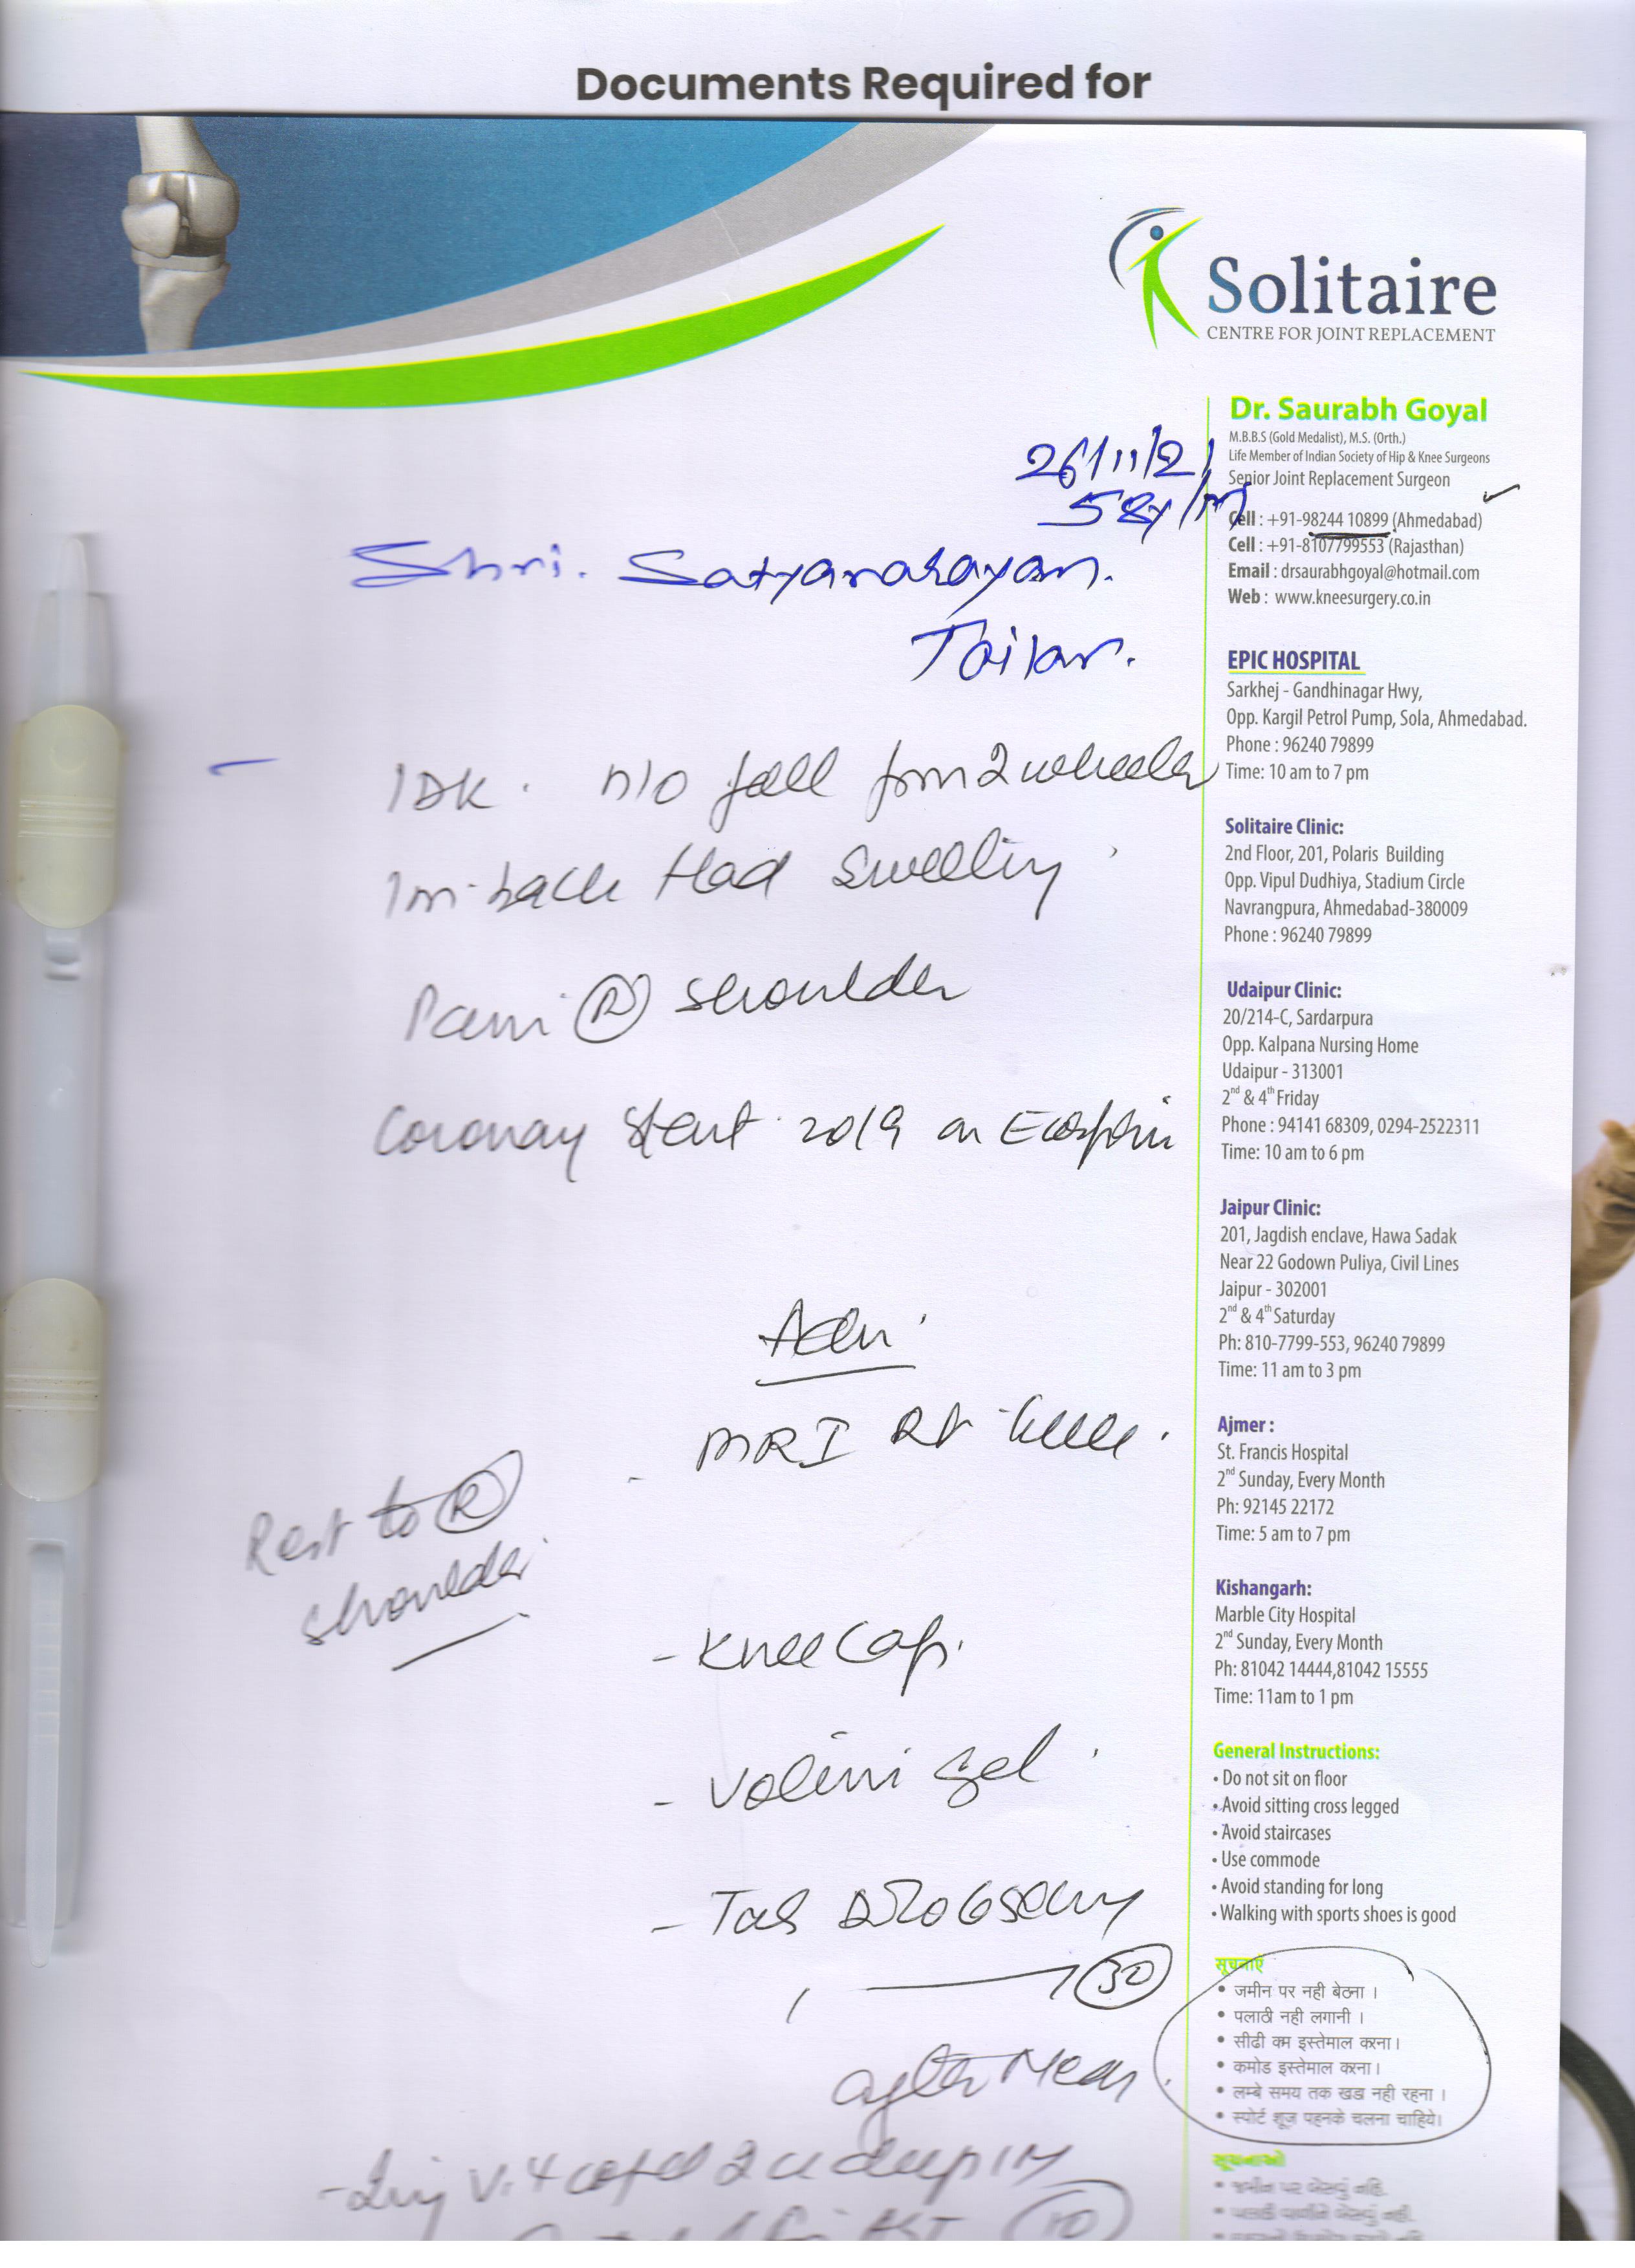 Documents Required for
Solitaire
CENTRE FOR JOINT REPLACEMENT
Dr. Saurabh Goyal
M.B.B.S (Gold Medalist), M.S. (Orth.)
Life Member of Indian Society of Hip & Knee Surgeons
Senior Joint Replacement Surgeon
Cell : +91-98244 10899 (Ahmedabad)
Cell : +91-8107799553 (Rajasthan)
Email : drsaurabhgoyal@hotmail.com
Web : www.kneesurgery.co.in
26/11/21
58y/M
Shri. Satyanarayan.
Tailar.
IDK. H/O fall from 2 wheeler
1m back Had Swelling
Pain R shoulder
Coronary stent 2019 on Ecosprin
Adv
- MRI Rt knee.
Rest to R
shoulder
- Knee Cap.
- Volini gel
- Tab
after Meal
deep IM
EPIC HOSPITAL
Sarkhej - Gandhinagar Hwy,
Opp. Kargil Petrol Pump, Sola, Ahmedabad.
Phone : 96240 79899
Time: 10 am to 7 pm
Solitaire Clinic:
2nd Floor, 201, Polaris Building
Opp. Vipul Dudhiya, Stadium Circle
Navrangpura, Ahmedabad-380009
Phone : 96240 79899
Udaipur Clinic:
20/214-C, Sardarpura
Opp. Kalpana Nursing Home
Udaipur - 313001
2nd & 4th Friday
Phone : 94141 68309, 0294-2522311
Time: 10 am to 6 pm
Jaipur Clinic:
201, Jagdish enclave, Hawa Sadak
Near 22 Godown Puliya, Civil Lines
Jaipur - 302001
2nd & 4th Saturday
Ph: 810-7799-553, 96240 79899
Time: 11 am to 3 pm
Ajmer :
St. Francis Hospital
2nd Sunday, Every Month
Ph: 92145 22172
Time: 5 am to 7 pm
Kishangarh:
Marble City Hospital
2nd Sunday, Every Month
Ph: 81042 14444,81042 15555
Time: 11am to 1 pm
General Instructions:
• Do not sit on floor
• Avoid sitting cross legged
• Avoid staircases
• Use commode
• Avoid standing for long
• Walking with sports shoes is good
सूचनाऐं
• जमीन पर नही बेठना ।
• पलाठी नही लगानी ।
• सीढी कम इस्तेमाल करना ।
• कमोड इस्तेमाल करना ।
• लम्बे समय तक खडा नही रहना ।
• स्पोर्ट शूज पहनके चलना चाहिये।
સૂચનાઓ
• જમીન પર બેસવું નહિ.